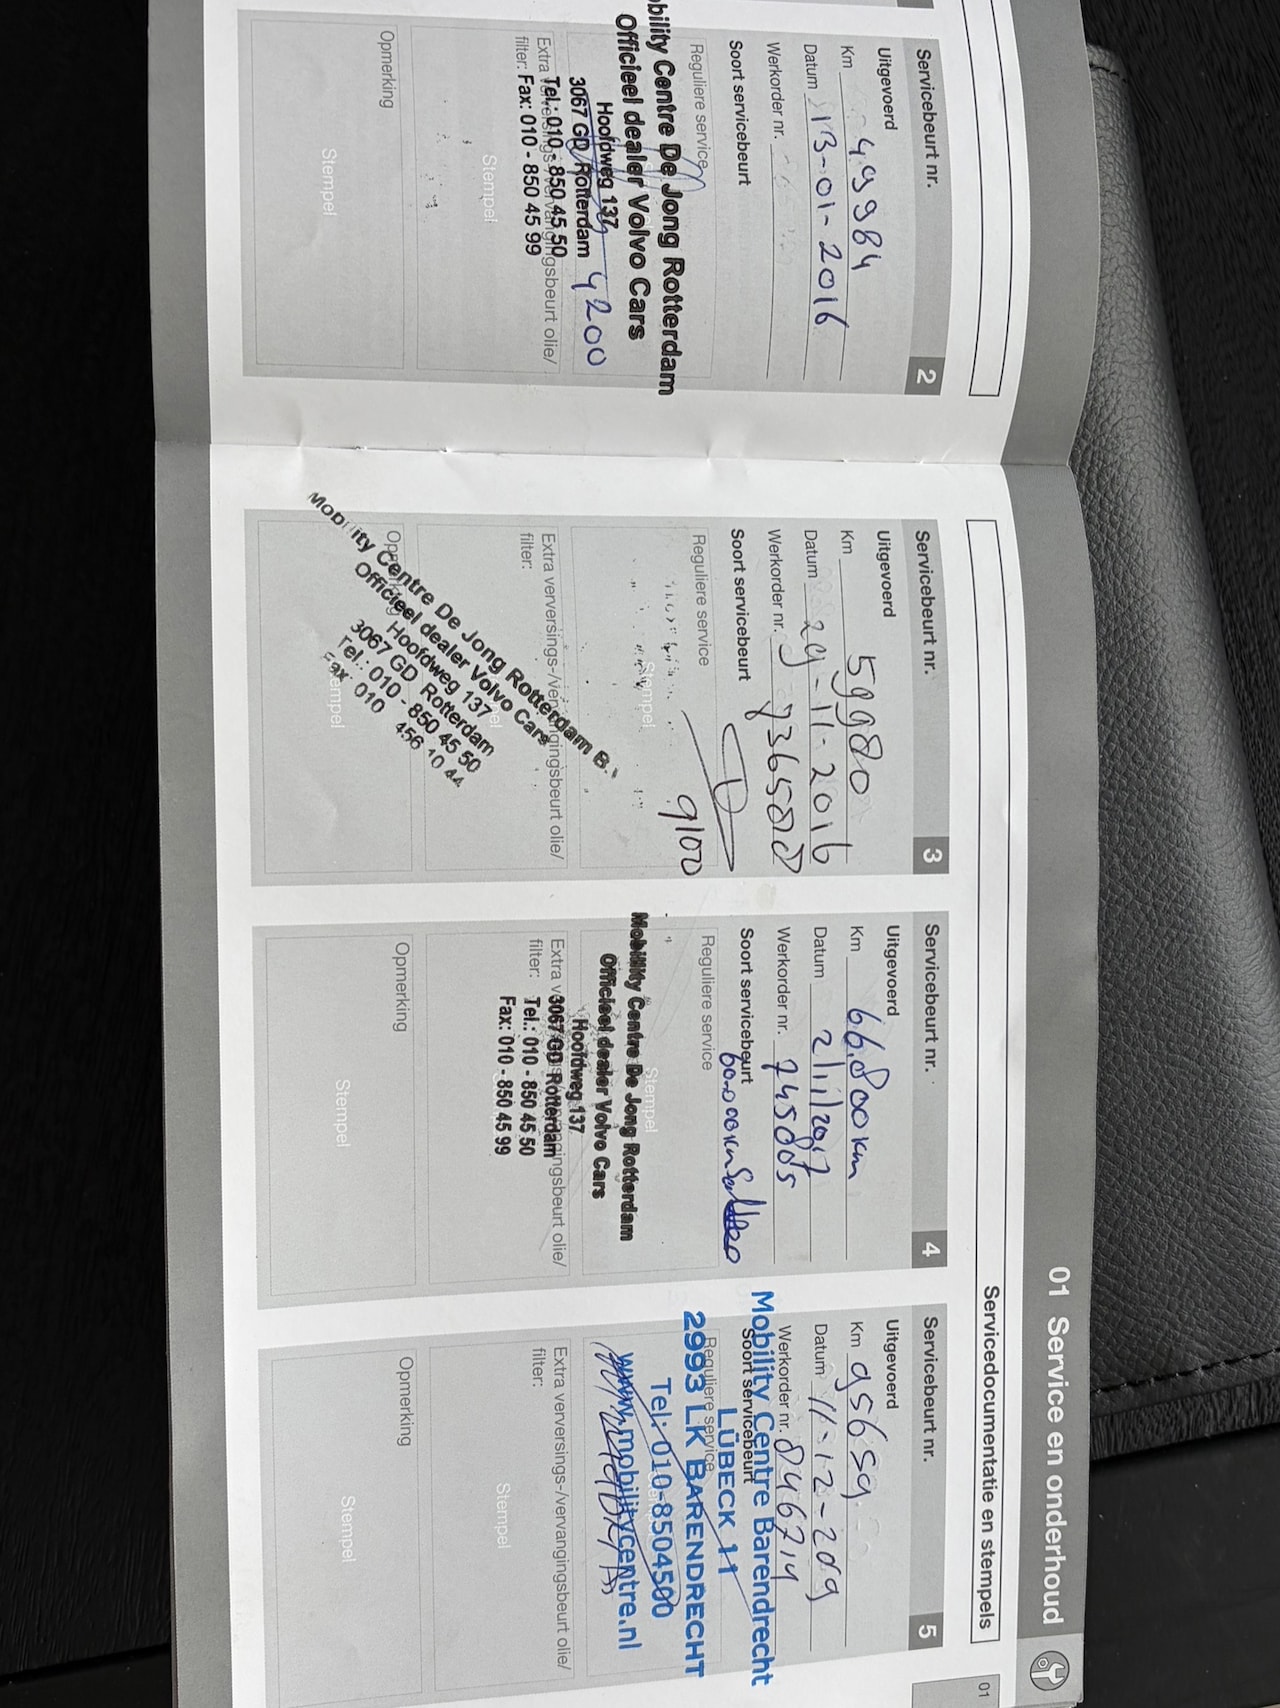 01 Service en onderhoud
Servicedocumentatie en stempels
01
Servicebeurt nr. 2
Uitgevoerd
Km 49984
Datum 13-01-2016
Werkorder nr.
Soort servicebeurt
Reguliere service
Mobility Centre De Jong Rotterdam
Officieel dealer Volvo Cars
Hoofdweg 137
3067 GD Rotterdam
Tel.: 010 - 850 45 50
Fax: 010 - 850 45 99
4200
Extra verversings-/vervangingsbeurt olie/
filter:
Stempel
Opmerking
Stempel
Servicebeurt nr. 3
Uitgevoerd
Km 59980
Datum 29-11-2016
Werkorder nr.
Soort servicebeurt
Reguliere service
9100
Stempel
Extra verversings-/vervangingsbeurt olie/
filter:
Stempel
Opmerking
Mobility Centre De Jong Rotterdam B.
Officieel dealer Volvo Cars
Hoofdweg 137
3067 GD Rotterdam
Tel.: 010 - 850 45 50
Fax: 010 456 10 44
Stempel
Servicebeurt nr. 4
Uitgevoerd
Km 66.800 km
Datum 2/11/2017
Werkorder nr. 745005
Soort servicebeurt
Reguliere service
Stempel
Mobility Centre De Jong Rotterdam
Officieel dealer Volvo Cars
Hoofdweg 137
3067 GD Rotterdam
Tel.: 010 - 850 45 50
Fax: 010 - 850 45 99
Extra verversings-/vervangingsbeurt olie/
filter:
Opmerking
Stempel
Servicebeurt nr. 5
Uitgevoerd
Km 95659
Datum 11-12-209
Werkorder nr. 846714
Soort servicebeurt
Reguliere service
Mobility Centre Barendrecht
LÜBECK 11
2993 LK BARENDRECHT
Tel: 010-8504500
www.mobilitycentre.nl
Extra verversings-/vervangingsbeurt olie/
filter:
Stempel
Opmerking
Stempel